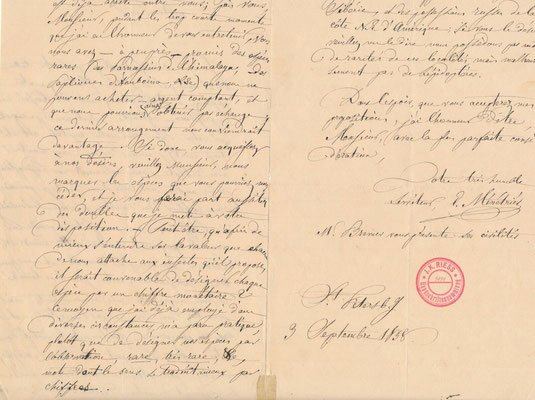 est déjà arrêté entre vous,
Monsieur, pendant les trop courts moments
que j'ai eu l'honneur de vous entretenir. Vous
nous avez — à peu près — promis des espèces
rares (les Parnassius de l'Himalaya les
Papilio
pouvons acheter argent comptant, et
que nous pourrions obtenir par échange,
ce dernier arrangement nous conviendrait
davantage. — Si donc vous acquiescez
à nos désirs, veuillez Monsieur, nous
marquer les espèces que vous pourriez nous
céder, et je vous ferai part aussitôt
des doubles que je mets à votre
disposition. — Peut être, qu'afin de
mieux s'entendre sur la valeur que chacun
de nous attache aux insectes qu'il propose,
il serait convenable de désigner chaque
espèce par un chiffre monétaire;
ce moyen que j'ai déjà employé dans
diverses circonstances m'a paru pratique
plutôt, que de désigner nos espèces par
l'observation, rare, très rare, &c
mots dont le sens se traduit mieux par
chiffres.
Sibérie et des possessions russes de la
côte N.O. d'Amérique; si vous le désirez
veuillez me le dire, nous possédons pas mal
de raretés de ces localités, mais malheureu-
sement pas de Lépidoptères.
Dans l'espoir, que vous accepterez mes
propositions, j'ai l'honneur d'être
Monsieur, avec la plus parfaite consi-
dération,
Votre très humble
Serviteur E. Ménétriés
M. Bremer vous présente ses civilités
St Petersb.g
3 Septembre 1858.
J. N. RIESS